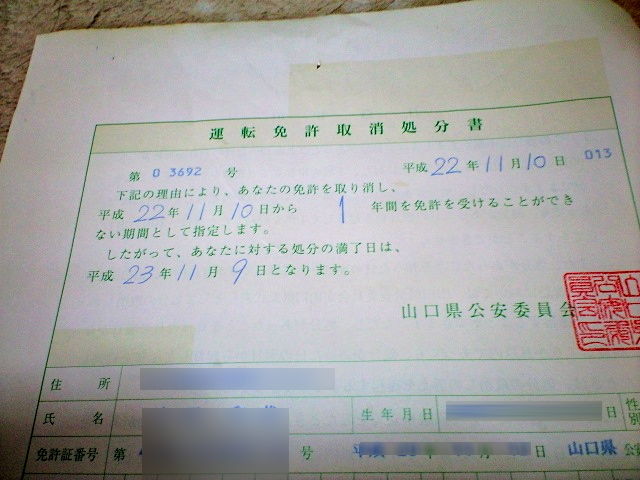 運転免許取消処分書
第 0 3692 号
平成22年11月10日 013
下記の理由により、あなたの免許を取り消し、
平成 22年11月10日から 1 年間を免許を受けることができ
ない期間として指定します。
したがって、あなたに対する処分の満了日は、
平成 23年11月 9日となります。
山口県公安委員会
住所
氏名
生年月日 日 性別
免許証番号 第 号 日 山口県公安